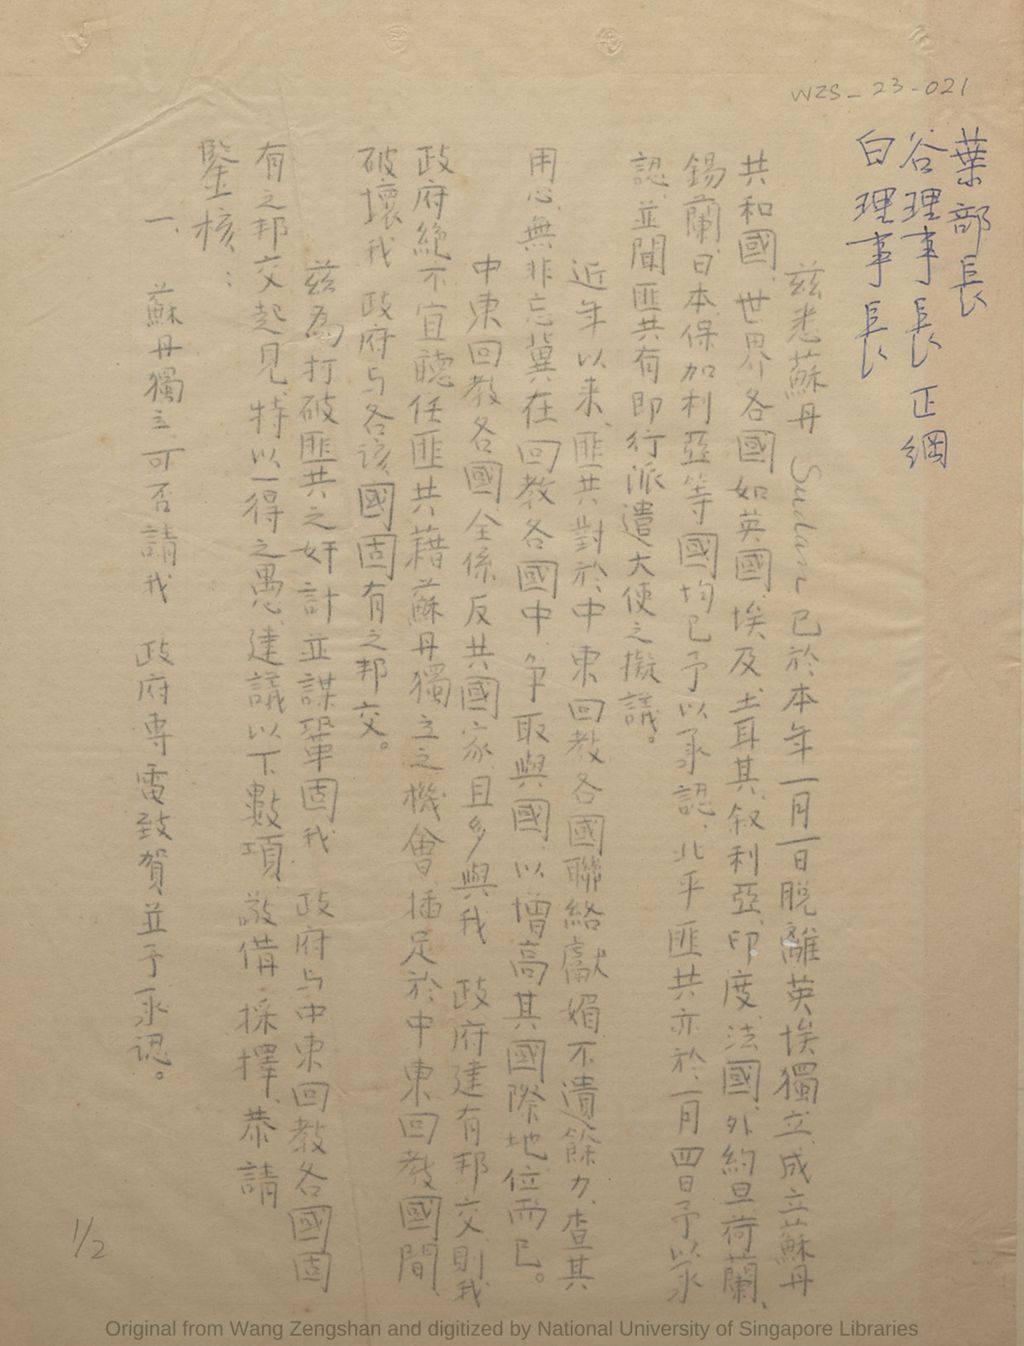 WZS-23-021
葉部長
谷理事長 正綱
白理事長
茲悉蘇丹 Sudan 已於本年一月一日脫離英埃獨立、成立蘇丹
共和國、世界各國如英國、埃及、土耳其、敘利亞、印度、法國、外約旦、荷蘭、
錫蘭、日本、保加利亞等國均已予以承認、北平匪共亦於一月四日予以承
認、並聞匪共有即行派遣大使之擬議。
近年以來、匪共對於中東回教各國聯絡獻媚、不遺餘力、查其
用心、無非忘冀在回教各國中、爭取與國、以增高其國際地位而已。
中東回教各國全係反共國家、且多與我 政府建有邦交、則我
政府絕不宜聽任匪共藉蘇丹獨立之機會、插足於中東回教國間、
破壞我 政府与各該國固有之邦交。
茲為打破匪共之奸計並謀鞏固我 政府与中東回教各國固
有之邦交起見、特以一得之愚、建議以下數項、敬備 採擇、恭請
鑒核：
一、 蘇丹獨立、可否請我 政府專電致賀並予承認。
1/2
Original from Wang Zengshan and digitized by National University of Singapore Libraries